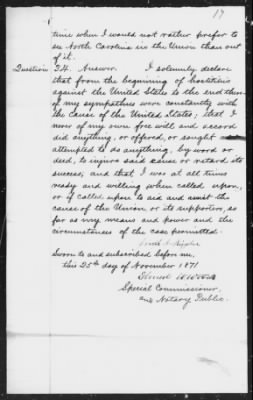 17
time when I would not rather prefer to
see North Carolina in the Union than out
of it.
Question 34. Answer. I solemnly declare
that from the beginning of hostilities
against the United States to the end thereof
my sympathies were constantly with
the cause of the United States; that I
never of my own free will and accord
did anything, or offered, or sought or
attempted to do anything, by word or
deed, to injure said cause or retard its
success, and that I was at all times
ready and willing when called upon,
or if called upon to aid and assist the
cause of the Union, or its supporters, so
far as my means and power and the
circumstances of the case permitted.
Sworn to and subscribed before me,
this 25th day of November 1871
Special Commissioner,
and Notary Public.